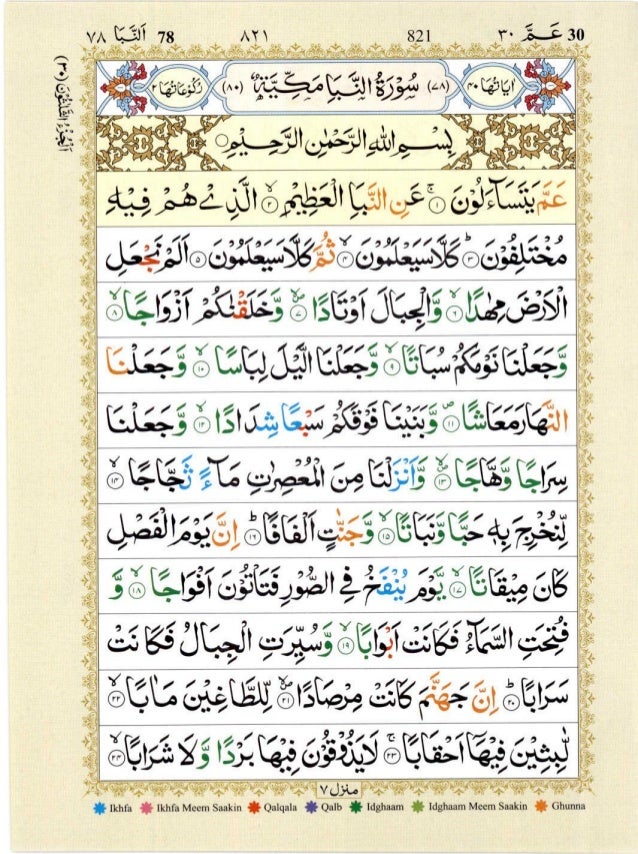 ٧٨ اَلنَّبَاِ 78 ٨٢١ 821 ٣٠ عَمَّ 30
اَلْجُزْءُ الثَّلٰثُوْنَ (٣٠)
اٰيَاتُهَا ٤٠ (٧٨) سُوْرَةُ النَّبَاِ مَكِّيَّةٌ (٨٠) رُكُوْعَاتُهَا ٢
بِسْمِ اللّٰهِ الرَّحْمٰنِ الرَّحِيْمِ
عَمَّ يَتَسَآءَلُوْنَ ۚ‏ ١ عَنِ النَّبَاِ الْعَظِيْمِۙ‏ ٢ الَّذِىْ هُمْ فِيْهِ
مُخْتَلِفُوْنَؕ‏ ٣ كَلَّا سَيَعْلَمُوْنَۙ‏ ٤ ثُمَّ كَلَّا سَيَعْلَمُوْنَ‏ ٥ اَلَمْ نَجْعَلِ
الْاَرْضَ مِهٰدًاۙ‏ ٦ وَّالْجِبَالَ اَوْتَادًاۙ‏ ٧ وَّخَلَقْنٰكُمْ اَزْوَاجًاۙ‏ ٨
وَّجَعَلْنَا نَوْمَكُمْ سُبَاتًاۙ‏ ٩ وَّجَعَلْنَا الَّيْلَ لِبَاسًاۙ‏ ١٠ وَّجَعَلْنَا
النَّهَارَ مَعَاشًا‏ ١١ وَّبَنَيْنَا فَوْقَكُمْ سَبْعًا شِدَادًاۙ‏ ١٢ وَّجَعَلْنَا
سِرَاجًا وَّهَّاجًا‏ ١٣ وَّاَنْزَلْنَا مِنَ الْمُعْصِرٰتِ مَآءً ثَجَّاجًاۙ‏ ١٤
لِّنُخْرِجَ بِهٖ حَبًّا وَّنَبَاتًاۙ‏ ١٥ وَّجَنّٰتٍ اَلْفَافًاؕ‏ ١٦ اِنَّ يَوْمَ الْفَصْلِ
كَانَ مِيْقَاتًاۙ‏ ١٧ يَّوْمَ يُنْفَخُ فِى الصُّوْرِ فَتَاْتُوْنَ اَفْوَاجًاۙ‏ ١٨ وَّ
فُتِحَتِ السَّمَآءُ فَكَانَتْ اَبْوَابًاۙ‏ ١٩ وَّسُيِّرَتِ الْجِبَالُ فَكَانَتْ
سَرَابًاؕ‏ ٢٠ اِنَّ جَهَنَّمَ كَانَتْ مِرْصَادًا‏ ٢١ لِّلطَّاغِيْنَ مَاٰبًاۙ‏ ٢٢
لّٰبِثِيْنَ فِيْهَاۤ اَحْقَابًاۚ‏ ٢٣ لَا يَذُوْقُوْنَ فِيْهَا بَرْدًا وَّلَا شَرَابًاۙ‏ ٢٤
منزل ٧
Ikhfa Ikhfa Meem Saakin Qalqala Qalb Idghaam Idghaam Meem Saakin Ghunna